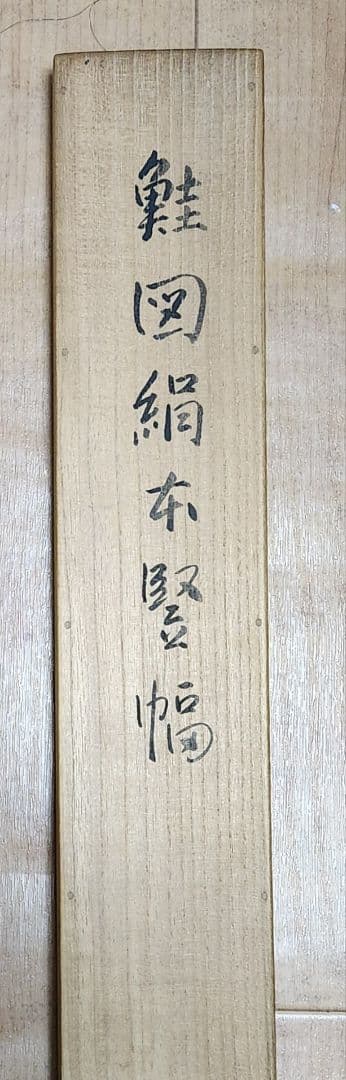 鮭図絹本竪幅